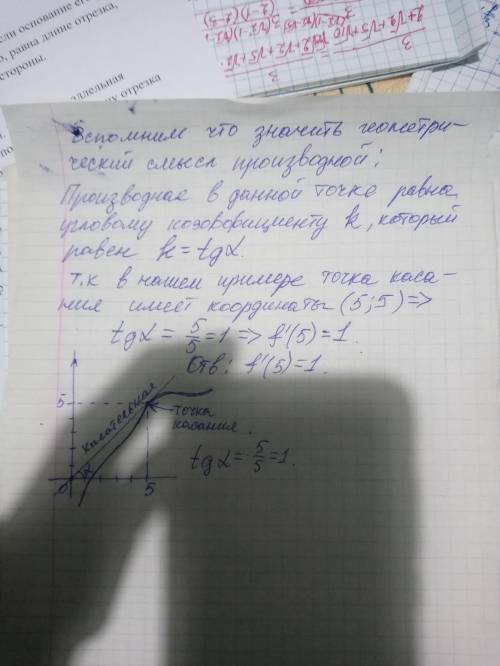 если основание его
равна длине отрезка,
стороны.
отрезка
Вспомним что значить геометри-
ческий смысл производной:
Производная в данной точке равна
угловому коэффициенту k, который
равен k = tgα.
т.к в нашем примере точка каса-
ния имеет координаты (5;5) =>
tgα = 5/5 = 1 => f'(5) = 1.
Отв: f'(5) = 1.
5
касательная
точка
касания.
α
0
5
tgα = 5/5 = 1.